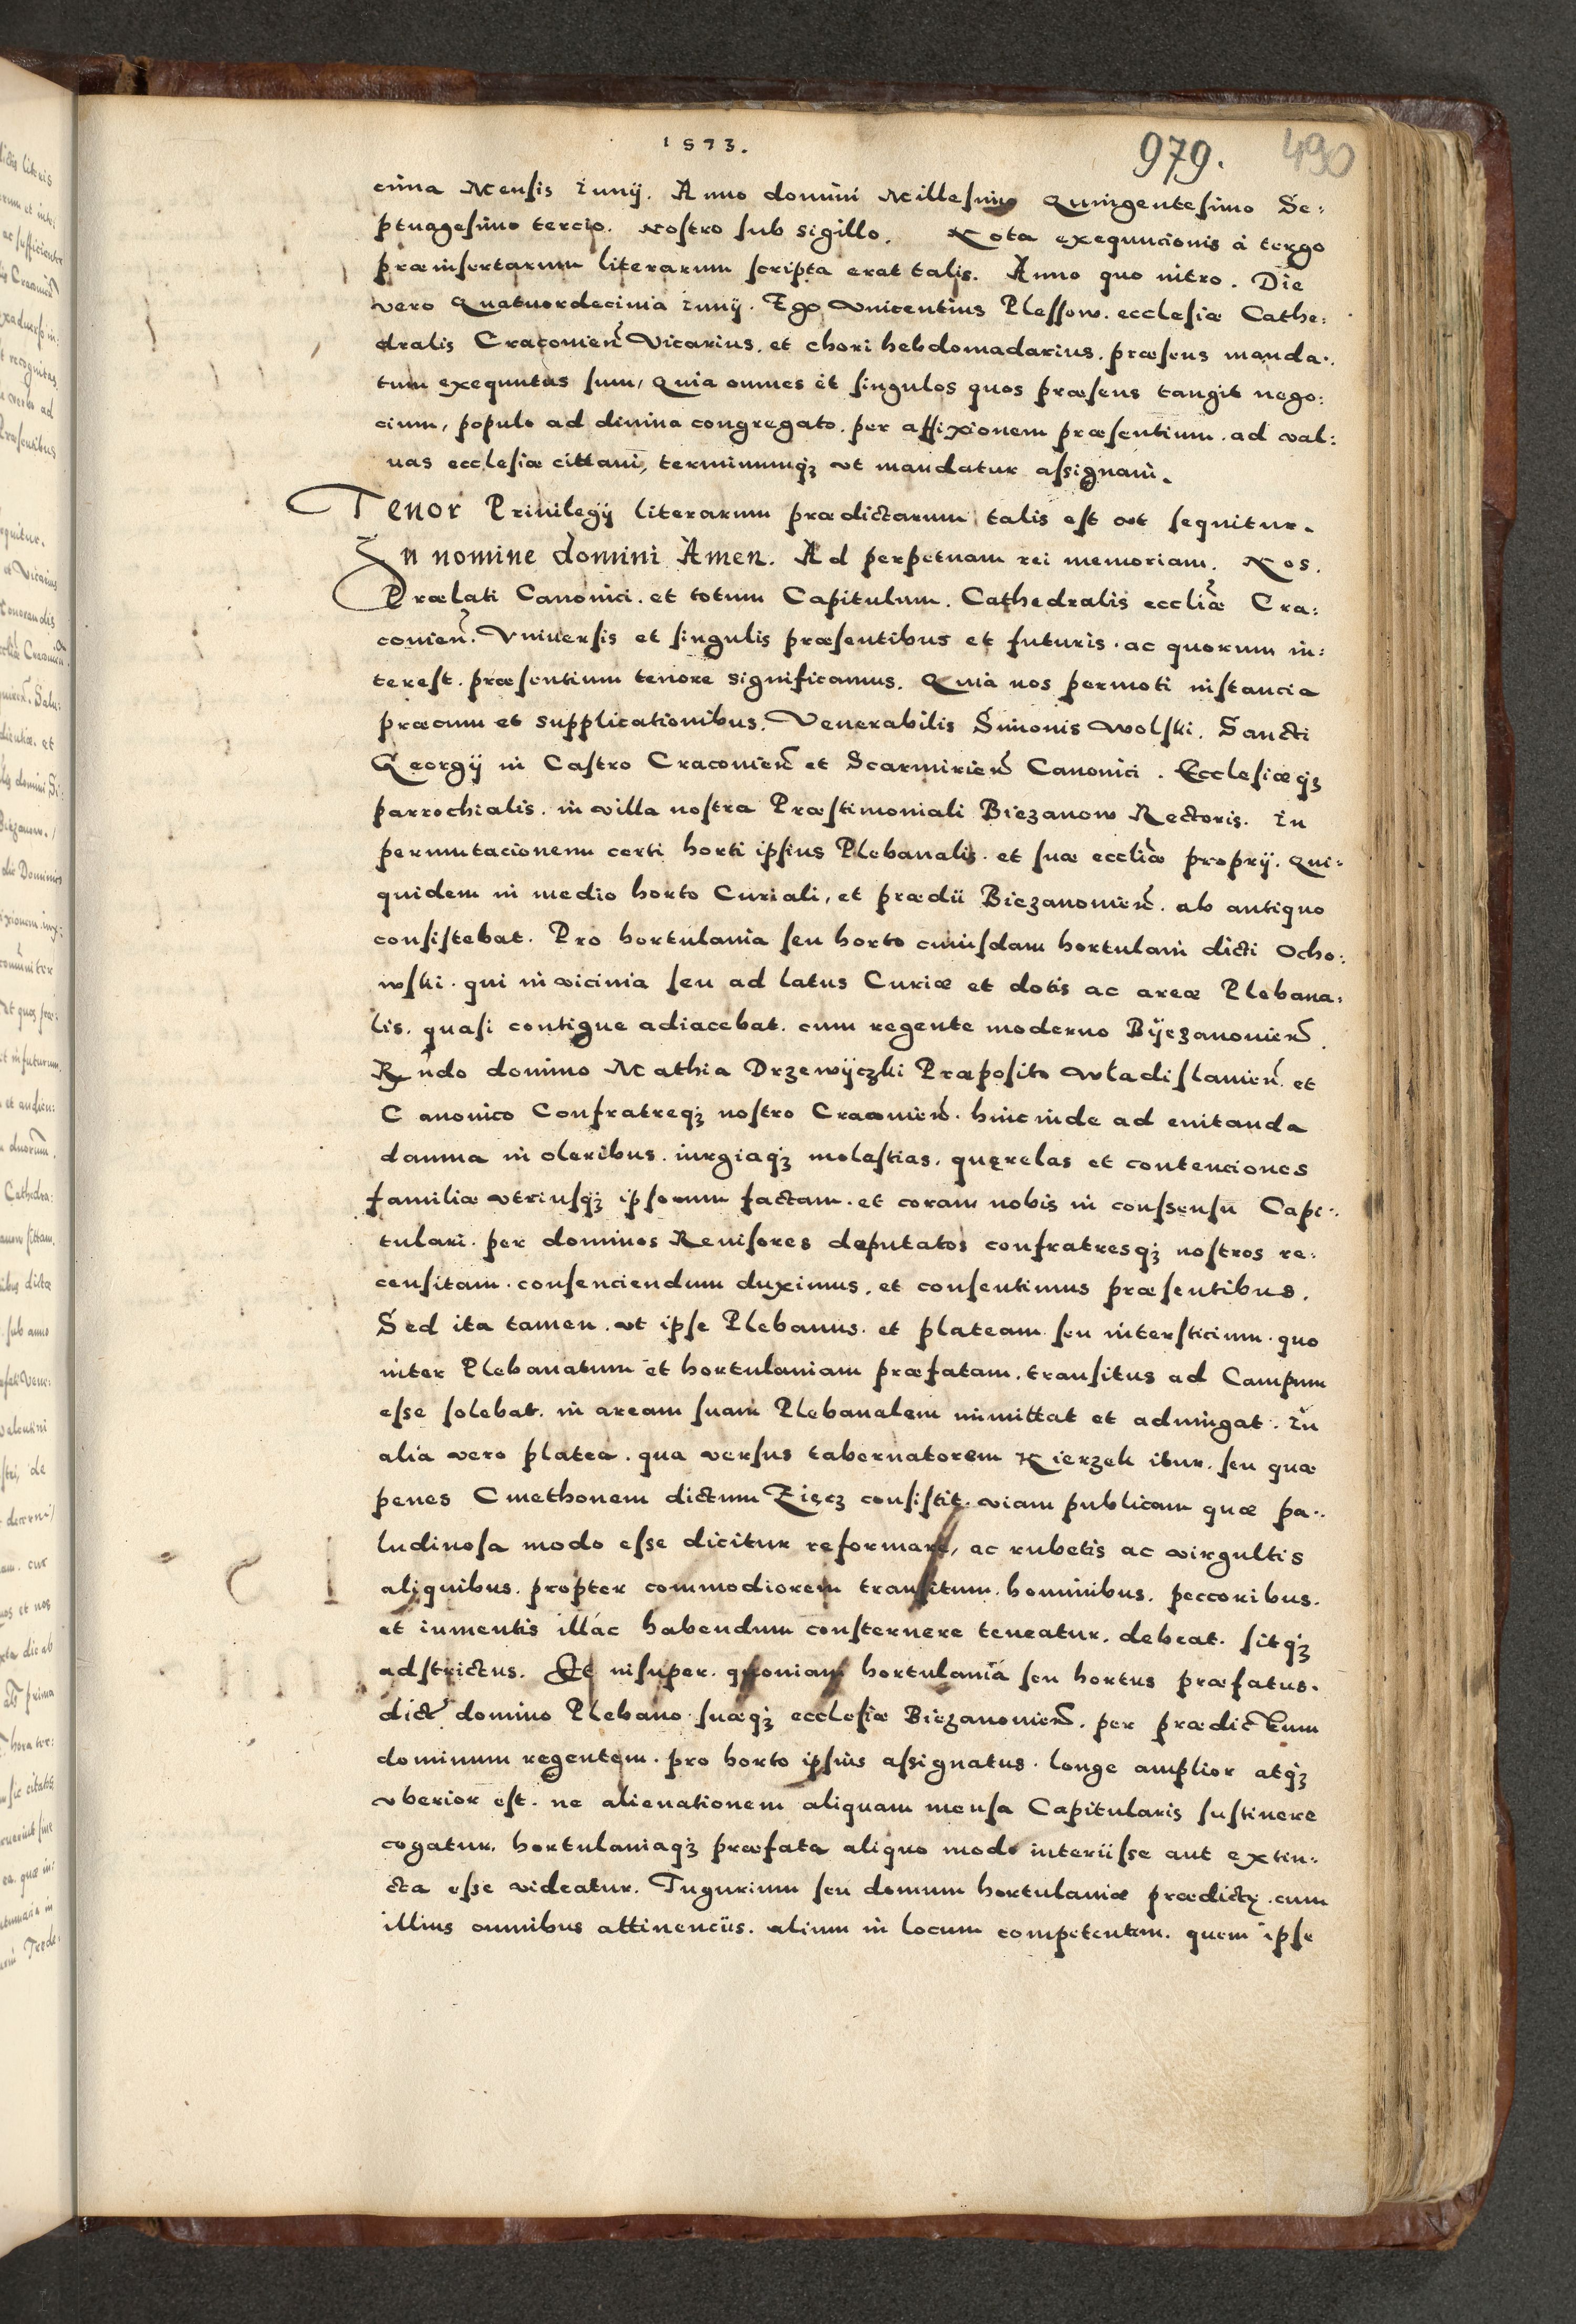 1573.
979. 490
cima Mensis Iunij. Anno domini Millesimo Quingentesimo Se:
ptuagesimo tercio. Nostro sub sigillo. Nota exequucionis à tergo
præinsertarum literarum scripta erat talis. Anno quo intro. Die
vero Quatuordecima Iunij. Ego Vnicentius Plessow. ecclesiæ Cathe:
dralis Cracouien̄ Vicarius. et chori hebdomadarius. præsens manda:
tum exequutus sum, Quia omnes et singulos quos præsens tangit nego:
cium, populo ad diuina congregato. per affixionem præsentium. ad val:
uas ecclesiæ cittaui, terminumqꝫ vt mandatur assignaui.
Tenor Priuilegij literarum prædictarum talis est vt sequitur.
In nomine domini Amen. Ad perpetuam rei memoriam. Nos.
Prælati Canonici. et totum Capitulum. Cathedralis eccliæ Cra:
couien̄. Vniuersis et singulis præsentibus et futuris. ac quorum in:
terest. præsentium tenore significamus. Quia nos permoti instancia
præcum et supplicationibus. Venerabilis Simonis Wolski. Sancti
Georgij in Castro Cracouien̄ et Scarmirien̄ Canonici. Ecclesiæqꝫ
parrochialis. in villa nostra Præstimoniali Biezanow Rectoris. In
permutacionem certi horti ipsius Plebanalis. et suæ eccliæ proprij. qui:
quidem in medio horto Curiali, et prædii Biezanouien̄. ab antiquo
consistebat. Pro hortulania seu horto cuiusdam hortulani dicti Ocho:
wski. qui in vicinia seu ad latus Curiæ et dotis ac areæ Plebana:
lis. quasi contigue adiacebat. cum regente moderno Bÿezanouien̄.
Rn̄do domino Mathia Drzewÿczki Præposito Wladislauien̄ et
Canonico Confratreqꝫ nostro Cracouien̄. hincinde ad euitanda
damna in oleribus. iurgiaqꝫ molestias. quęrelas et contenciones
familiæ vtriusqꝫ ipsorum factam. et coram nobis in consensu Capi:
tulari. per dominos Reuisores deputatos confratresqꝫ nostros re:
censitam. consenciendum duximus. et consentimus præsentibus.
Sed ita tamen. vt ipse Plebanus. et plateam. seu intersticium. quo
inter Plebanatum et hortulaniam præfatam. transitus ad Campum
esse solebat. in aream suam Plebanalem immittat et adiungat. In
alia vero platea. qua versus tabernatorem Kierzek itur. seu quæ
penes Cmethonem dictum Zięcz consistit. viam publicam quæ pa:
ludinosa modo esse dicitur reformare, ac rubetis ac virgultis
aliquibus. propter commodiorem transitum. hominibus. peccoribus.
et iumentis illác habendum consternere teneatur. debeat. sitqꝫ
adstrictus. Et insuper. quoniam hortulania seu hortus præfatus.
dict̄ domino Plebano suæqꝫ ecclesiæ Biezanouien̄. per prædictum
dominum regentem. pro horto ipsius assignatus. longe amplior atqꝫ
vberior est. ne alienationem aliquam mensa Capitularis sustinere
cogatur. hortulaniaqꝫ præfata aliquo modo interiisse aut extin:
cta esse videatur. Tugurium seu domum hortulaniæ prædictę. cum
illius omnibus attinenciis. alium in locum competentem. quem ipse